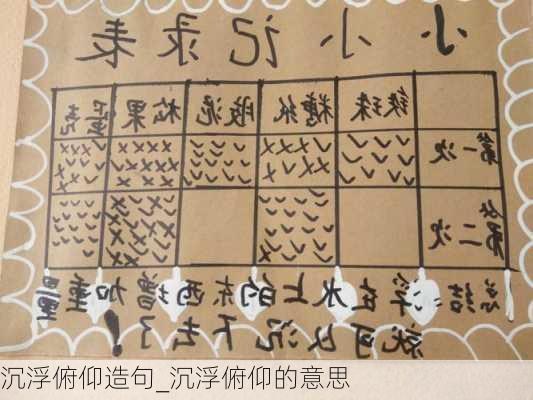 小小记录表
铁珠 糖纸 胶泥 松果 蛋壳
第一次
第二次
总结:浮在水上的东西增加重量
就可以沉下去了!
沉浮俯仰造句_沉浮俯仰的意思